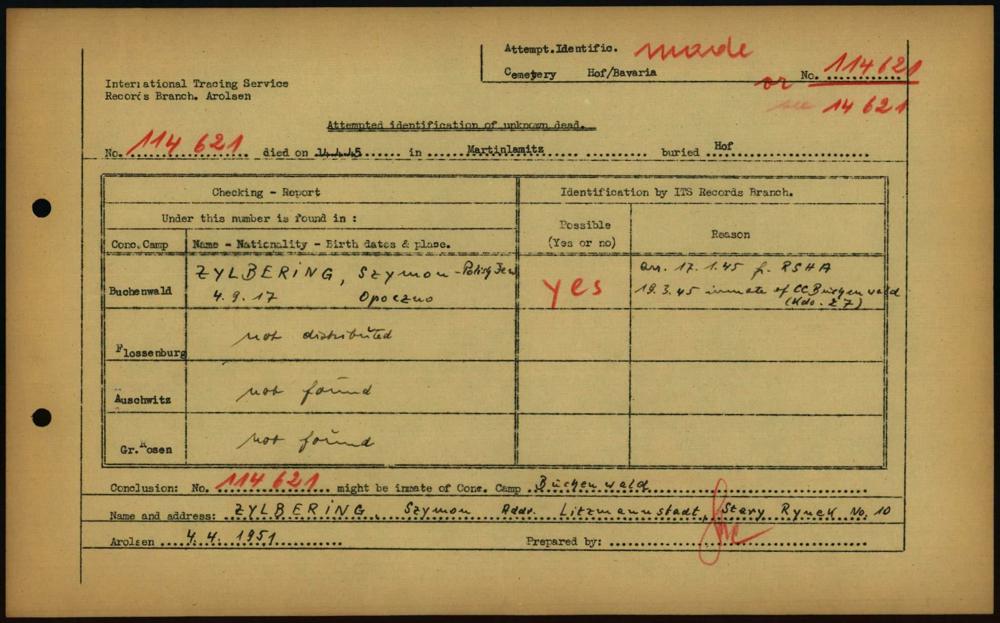 Attempt.Identific. made
Cemetery Hof/Bavaria No. 114 621
or
see 14 621
International Tracing Service
Records Branch. Arolsen
Attempted identification of unknown dead.
No. 114 621 died on 14.4.45 in Martinlamitz buried Hof
Checking - Report Identification by ITS Records Branch.
Under this number is found in :
Possible (Yes or no) Reason
Conc.Camp Name - Nationality - Birth dates & place.
Buchenwald ZYLBERING, Szymon - Polish Jew yes arr. 17.1.45 f. RSHA
4.9.17 Opoczno 19.3.45 inmate of CC Buchenwald
(Kdo. 27)
Flossenburg not distributed
Auschwitz not found
Gr.Rosen not found
Conclusion: No. 114 621 might be inmate of Conc. Camp Buchenwald
Name and address: ZYLBERING, Szymon Addr. Litzmannstadt, Stary Rynek No. 10
Arolsen 4.4.1951 Prepared by: